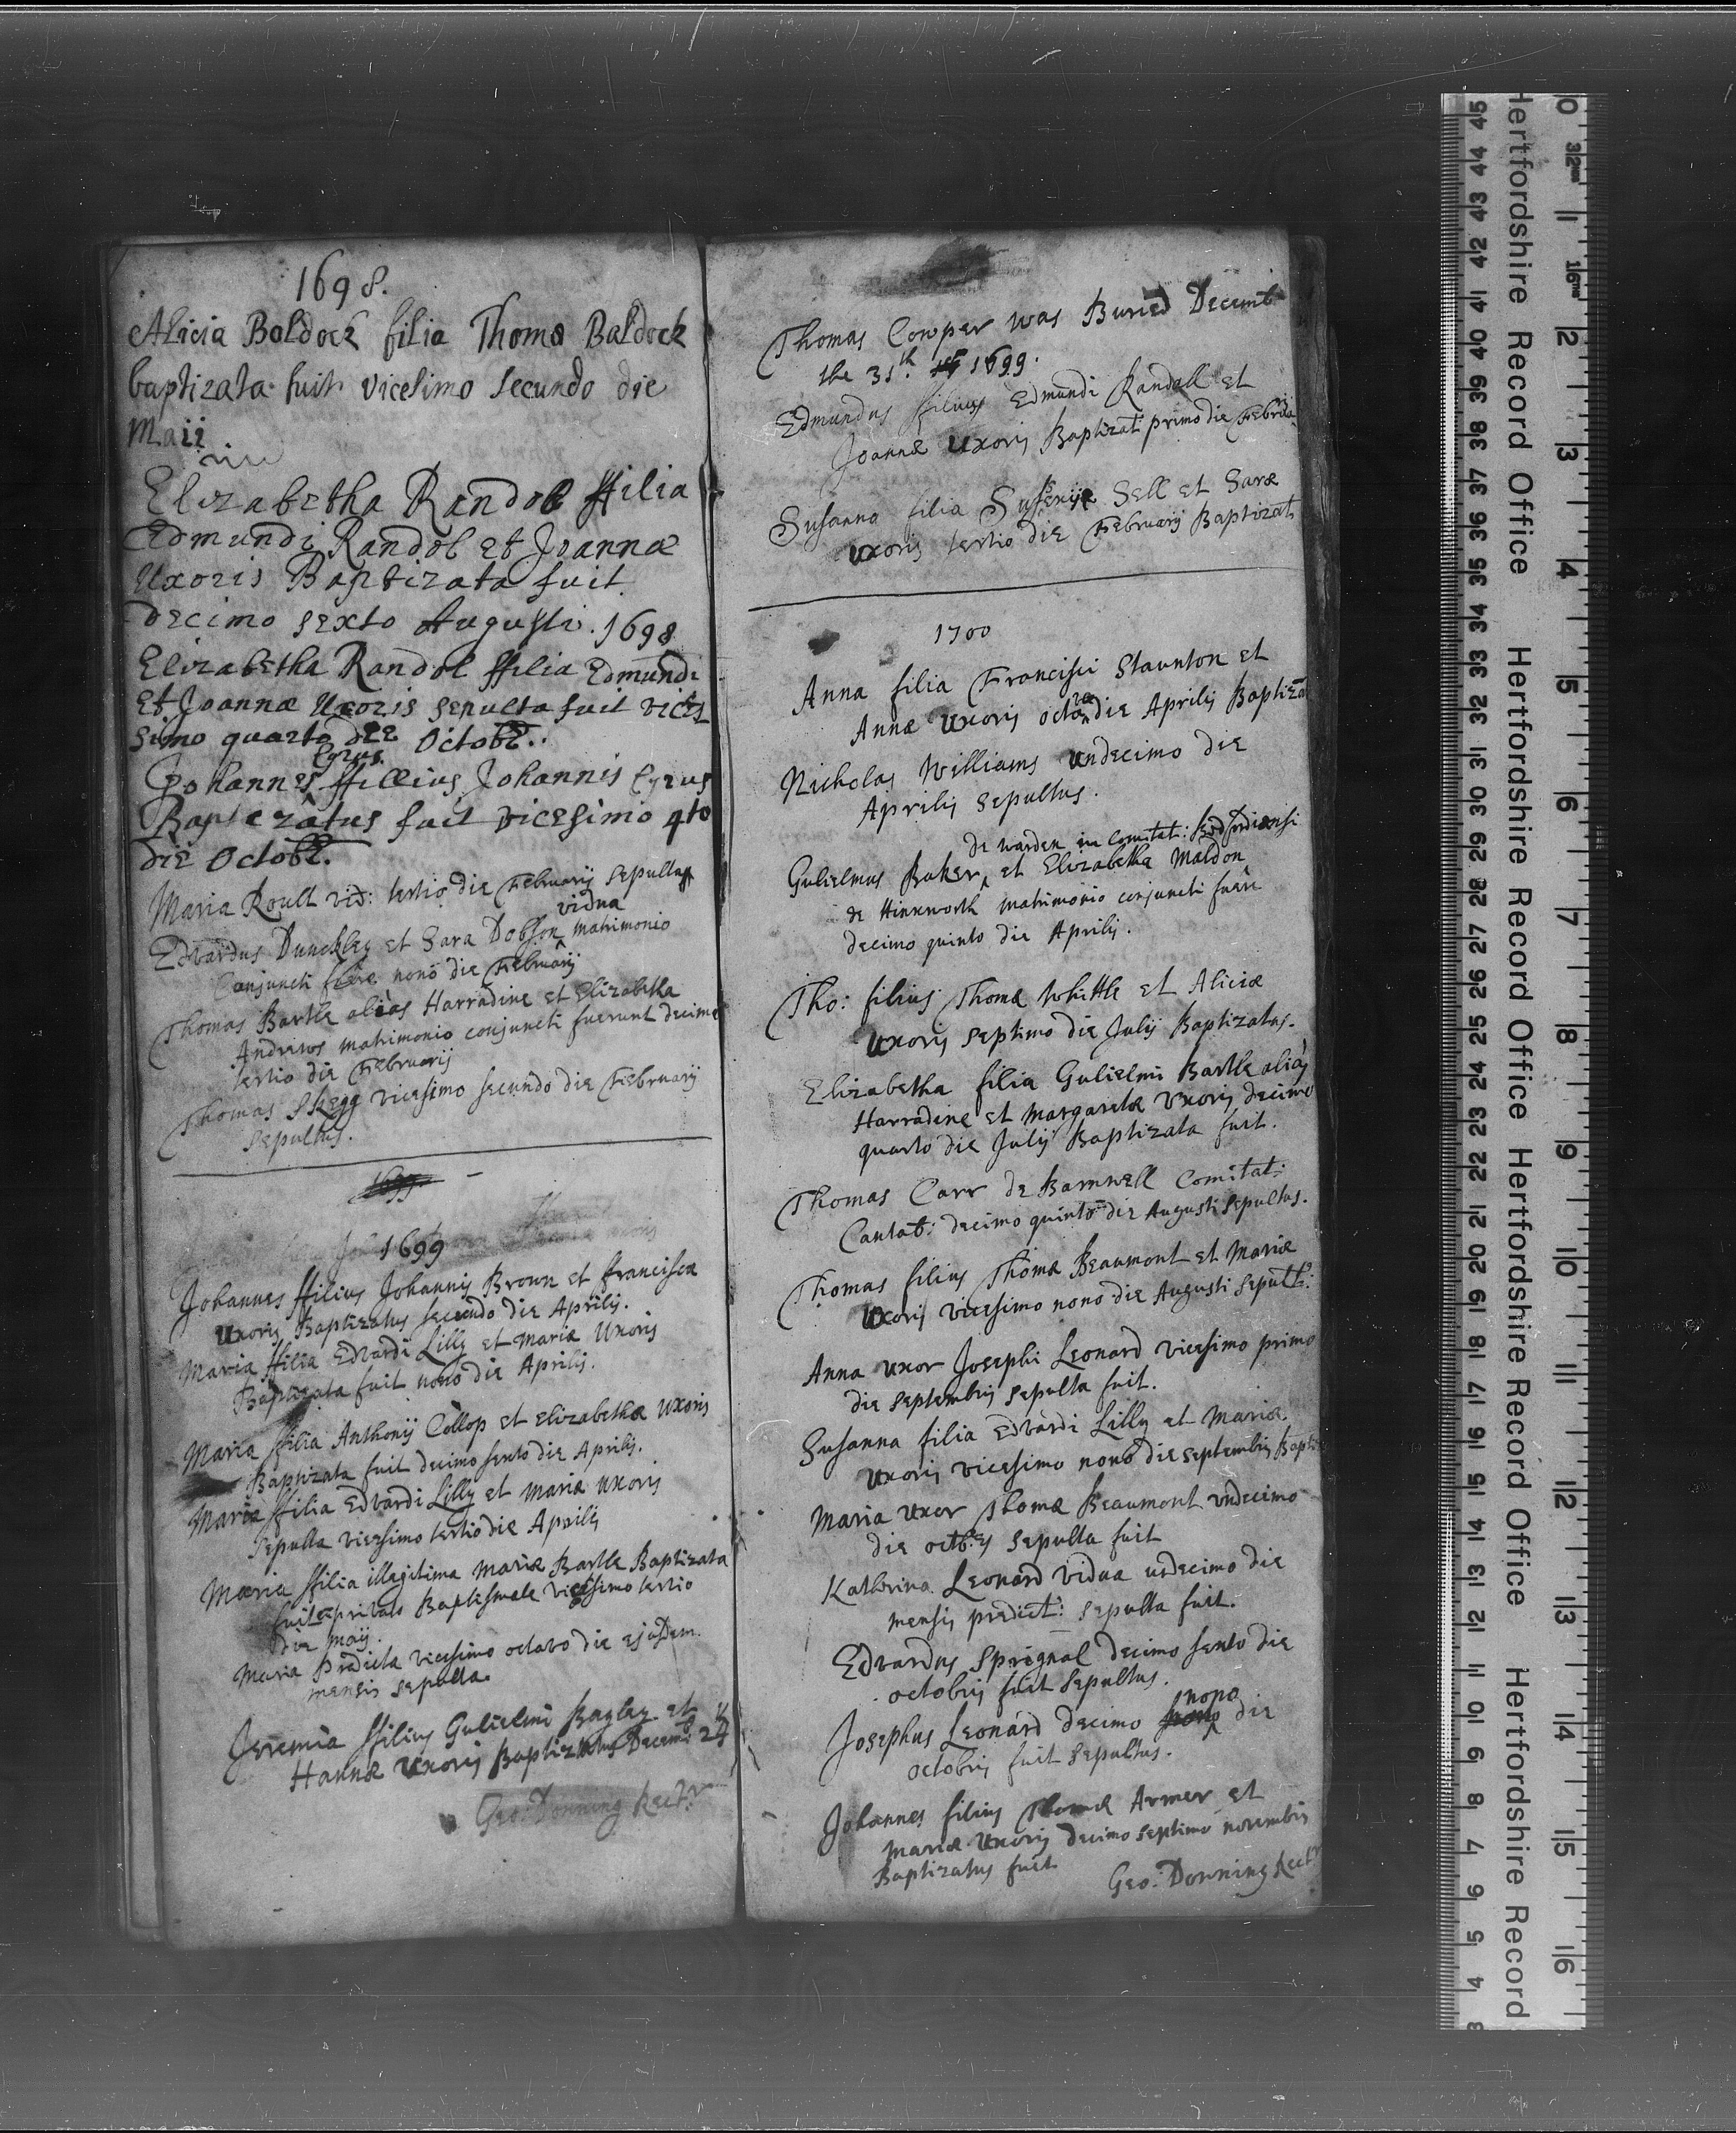 1698.
Alicia Baldock filia Thomæ Baldock
baptizata fuit vicesimo secundo die
Maii
Elizabetha Randol ffilia
Edmundi Randol et Joannæ
Uxoris Baptizata fuit
Decimo sexto Augusti. 1698
Elizabetha Randol ffilia Edmundi
Et Joannæ Uxoris sepulta fuit vices
simo quarto die Octobr.
Cyrus
Johannes ffillius Johannis Cyrus
Baptizatus fuit vicesimo 4to
die Octobr.
Maria Roult vid: tertio die Februarij sepulta
vidua
Edvardus Dunckley et Sara Dobson ^ matrimonio
Conjuncti fuere nono die Februarij
Thomas Bartle alias Harradine et Elizabetha
Andrews matrimonio conjuncti fuerunt decimo
tertio die Februarij
Thomas Skegg vicesimo secundo die Februarij
Sepultus.
1699
1699
Johannes ffilius Johannis Brown et francisca
Uxoris Baptizatus secundo die Aprilis.
Maria ffilia Edvardi Lilly et Mariæ Uxoris
Baptizata fuit nono die Aprilis.
Maria ffilia Anthonij Collop et Elizabethæ Uxoris
Baptizata fuit decimo sexto die Aprilis.
Maria ffilia Edvardi Lilly et Mariæ Uxoris
Sepulta vicesimo tertio die Aprilis
Maria ffilia illegitima Mariæ Bartle Baptizata
fuit privato Baptismate vicesimo tertio
die Maij.
Maria Prædicta vicesimo octavo die ejusdem
mensis sepulta.
Jeremia ffilius Gulielmi Bagley et
Hannæ Uxoris Baptizatus Decemb
Geo: Downing Rectr
Thomas Cowper was Buried Decemb
the 31th 1699.
Edmundus filius Edmundi Randall et
Joannæ Uxoris Baptizat primo die Februa
Susanna filia Sell et Saræ
uxoris tertio die Februarij Baptizat
1700
Anna filia Francisci Staunton et
Annæ Uxoris octavo die Aprilis Baptiza
Nicholas Williams undecimo die
Aprilis sepultus.
de Warden in Comitat: Bedfordiensi
Gulielmus Baker ^ et Elizabetha Maldon
de Hinxworth matrimonio conjuncti fuere
decimo quinto die Aprilis.
Tho: filius Thomæ Whittle et Aliciæ
Uxoris septimo die Julij Baptizatus.
Elizabetha filia Gulielmi Bartle alias
Harradine et Margaretæ Uxoris decimo
quarto die Julij Baptizata fuit.
Thomas Carr de Barnwell Comitat:
Cantab: decimo quinto die Augusti sepultus.
Thomas filius Thomæ Beaumont et Mariæ
Uxoris vicesimo nono die Augusti sepult:
Anna uxor Josephi Leonard vicesimo primo
die septembris sepulta fuit.
Susanna filia Edvardi Lilly et Mariæ
Uxoris vicesimo nono die septembris Bapti
Maria Uxor Thomæ Beaumont undecimo
die octbris sepulta fuit
Katherina Leonard vidua undecimo die
mensis predict: sepulta fuit.
Edvardus Sprignal decimo sexto die
octobris fuit sepultus.
nono
Josephus Leonard decimo ^ die
octobris fuit sepultus.
Johannes filius Thomæ Armer et
Mariæ Uxoris decimo septimo novembris
Baptizatus fuit
Geo: Downing Rectr
Hertfordshire Record Office Hertfordshire Record Office Hertfordshire Record Office Hertfordshire Record